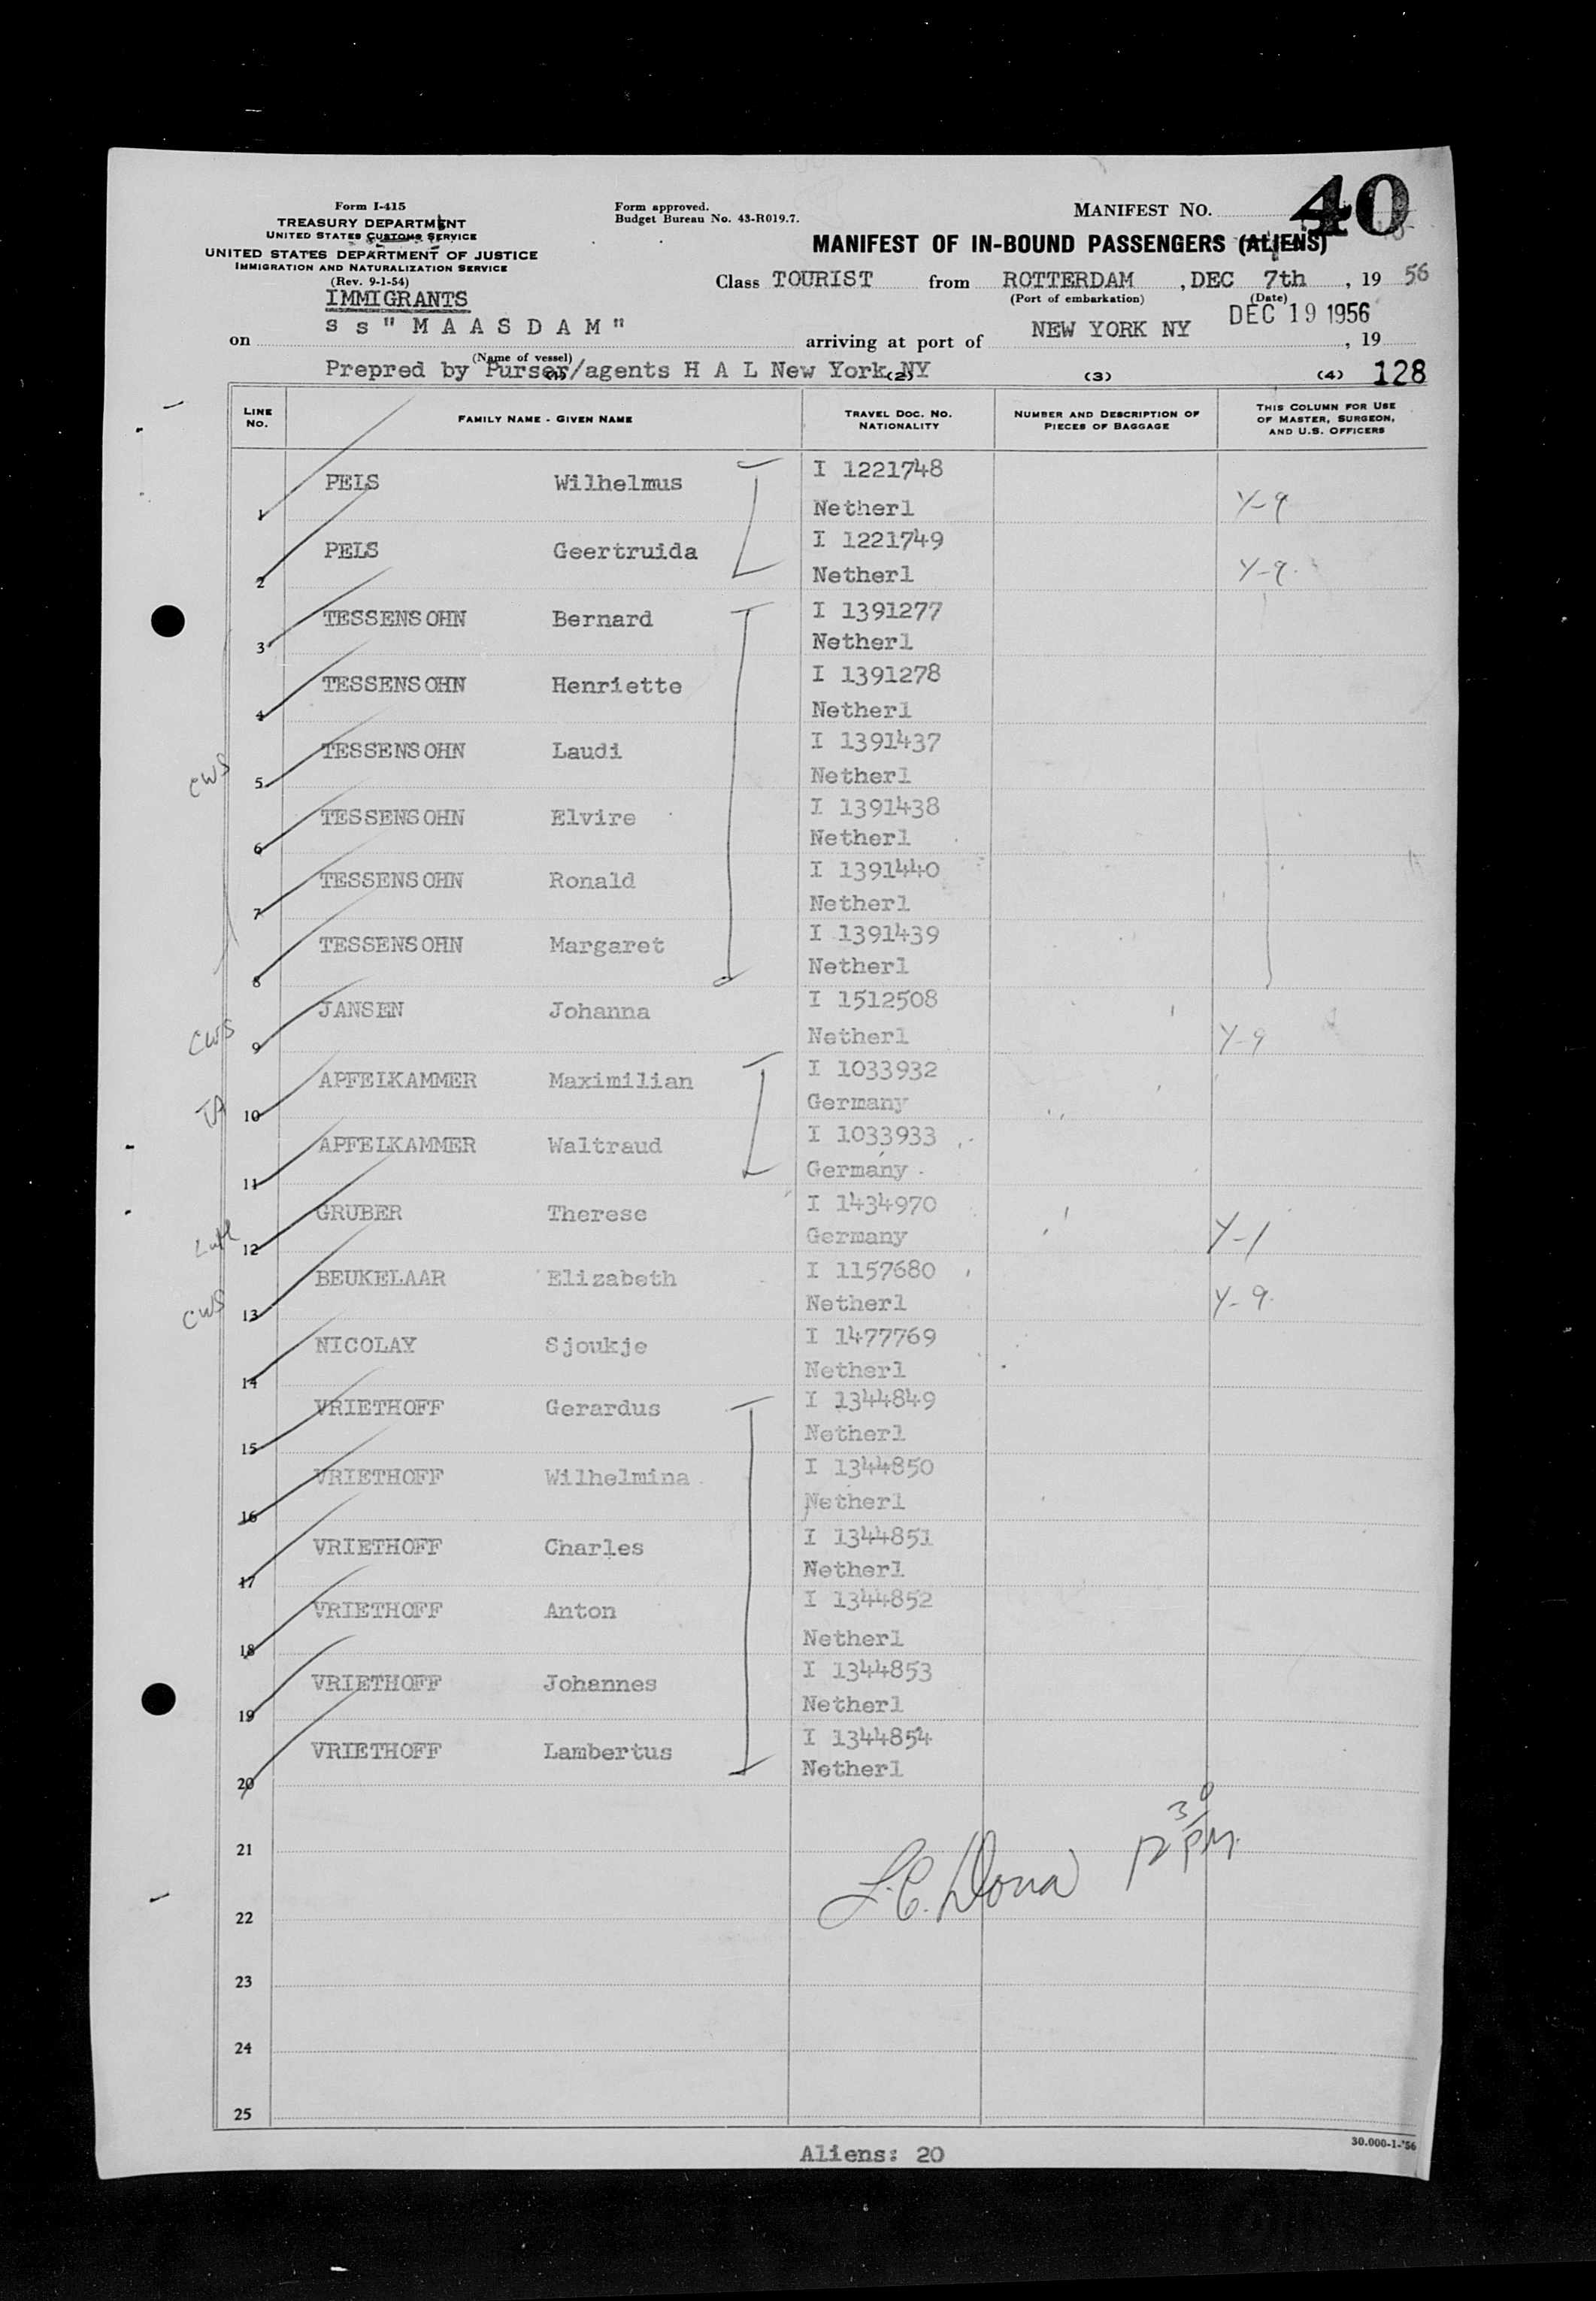 Form I-415
TREASURY DEPARTMENT
UNITED STATES CUSTOMS SERVICE
UNITED STATES DEPARTMENT OF JUSTICE
IMMIGRATION AND NATURALIZATION SERVICE
(Rev. 9-1-54)
IMMIGRANTS
Form approved.
Budget Bureau No. 43-R019.7.
MANIFEST NO. 40
MANIFEST OF IN-BOUND PASSENGERS (ALIENS)
Class TOURIST from ROTTERDAM, DEC 7th, 19 56
(Port of embarkation) (Date)
on s s "M A A S D A M" arriving at port of NEW YORK NY DEC 19 1956, 19
(Name of vessel)
Prepred by Purser/agents H A L New York NY
(1) (2) (3) (4) 128
LINE NO. FAMILY NAME - GIVEN NAME TRAVEL DOC. NO. NATIONALITY NUMBER AND DESCRIPTION OF PIECES OF BAGGAGE THIS COLUMN FOR USE OF MASTER, SURGEON, AND U.S. OFFICERS
1 PELS Wilhelmus I 1221748 Netherl Y-9
2 PELS Geertruida I 1221749 Netherl Y-9
3 TESSENSOHN Bernard I 1391277 Netherl
4 TESSENSOHN Henriette I 1391278 Netherl
CWS 5 TESSENSOHN Laudi I 1391437 Netherl
6 TESSENSOHN Elvire I 1391438 Netherl
7 TESSENSOHN Ronald I 1391440 Netherl
8 TESSENSOHN Margaret I 1391439 Netherl
CWS 9 JANSEN Johanna I 1512508 Netherl Y-9
10 APFELKAMMER Maximilian I 1033932 Germany
11 APFELKAMMER Waltraud I 1033933 Germany
12 GRUBER Therese I 1434970 Germany Y-1
CWS 13 BEUKELAAR Elizabeth I 1157680 Netherl Y-9
14 NICOLAY Sjoukje I 1477769 Netherl
15 VRIETHOFF Gerardus I 1344849 Netherl
16 VRIETHOFF Wilhelmina I 1344850 Netherl
17 VRIETHOFF Charles I 1344851 Netherl
18 VRIETHOFF Anton I 1344852 Netherl
19 VRIETHOFF Johannes I 1344853 Netherl
20 VRIETHOFF Lambertus I 1344854 Netherl
21
22
23
24
25
12 30 PM
Aliens: 20
30.000-1-'56